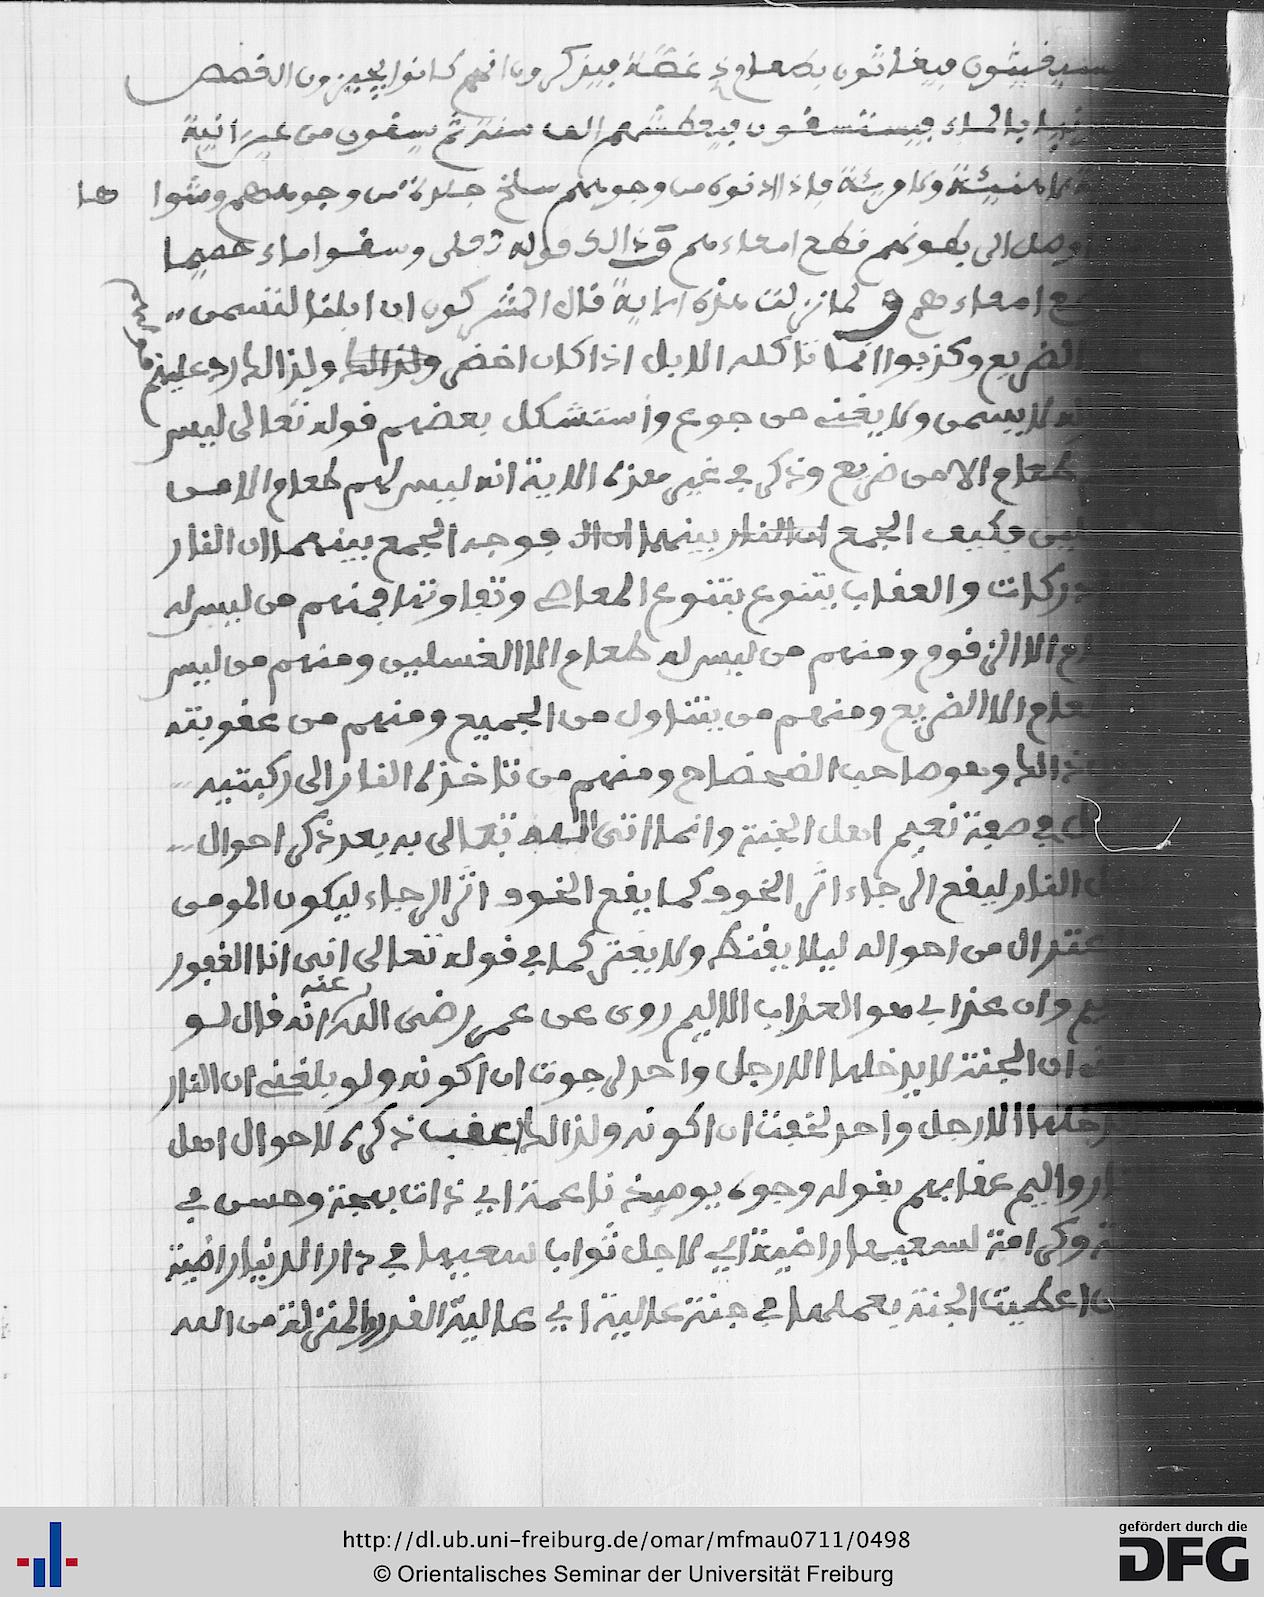 فيغاثون بطعام ذي غصة فيذكرون انهم كانوا يجيزون الغصص
بالماء فيستسقون فيعطشهم الف سنة ثم يسقون من عين انية
لا هنيئة ولا مريئة فاذا ادنوه من وجوههم سلخ جلدة من وجوههم وشوا ها
وصل الى بطونهم قطع امعاءهم فذالك قوله تعلى وسقوا ماء حميما
امعاءهم ولما نزلت هذه الاية قال المشركون ان ابلنا لتسمن
الضريع وكذبوا انما تاكله الابل اذا كان اخضر ولذالك ولذالك رد عليهم
لا يسمن ولا يغنى من جوع واستشكل بعضهم قوله تعالى ليس
طعام الا من ضريع وذكر في غير هذه الاية انه ليس لهم طعام الا من
فكيف الجمع ان النار بينهما فوجه الجمع بينهما ان النار
دركات والعقاب يتنوع بتنوع المعاصي وتفاوتها فمنهم من ليس له
الا الزقوم ومنهم من ليس له طعام الا الغسلين ومنهم من ليس
طعام الا الضريع ومنهم من يتناول من الجميع ومنهم من عقوبته
ذالك وهو صاحب الضحضاح ومنهم من تاخذه النار الى ركبتيه
في صفة نعيم اهل الجنة وانما اتى الله تعالى به بعد ذكر احوال
النار ليقع الرجاء اثر الخوف كما يقع الخوف اثر الرجاء ليكون المومن
من احواله ليلا يقنط ولا يغتر كما في قوله تعالى اني انا الغفور
وان عذابي هو العذاب الاليم روى عن عمر رضى الله عنه انه قال لو
ان الجنة لا يدخلها الا رجل واحد لرجوت ان اكونه ولو بلغني ان النار
الا رجل واحد لخفت ان اكونه ولذالك اعقب ذكره لاحوال اهل
واليم عقابهم بقوله وجوه يوميذ ناعمة اي ذات بهجة وحسن في
وكرامة لسعيها راضية اي لاجل ثواب سعيها في دار الدنيا راضية
اعطيت الجنة بعملها في جنة عالية اي عالية القدر والمنزلة من الله
http://dl.ub.uni-freiburg.de/omar/mfmau0711/0498
© Orientalisches Seminar der Universität Freiburg
gefördert durch die
DFG